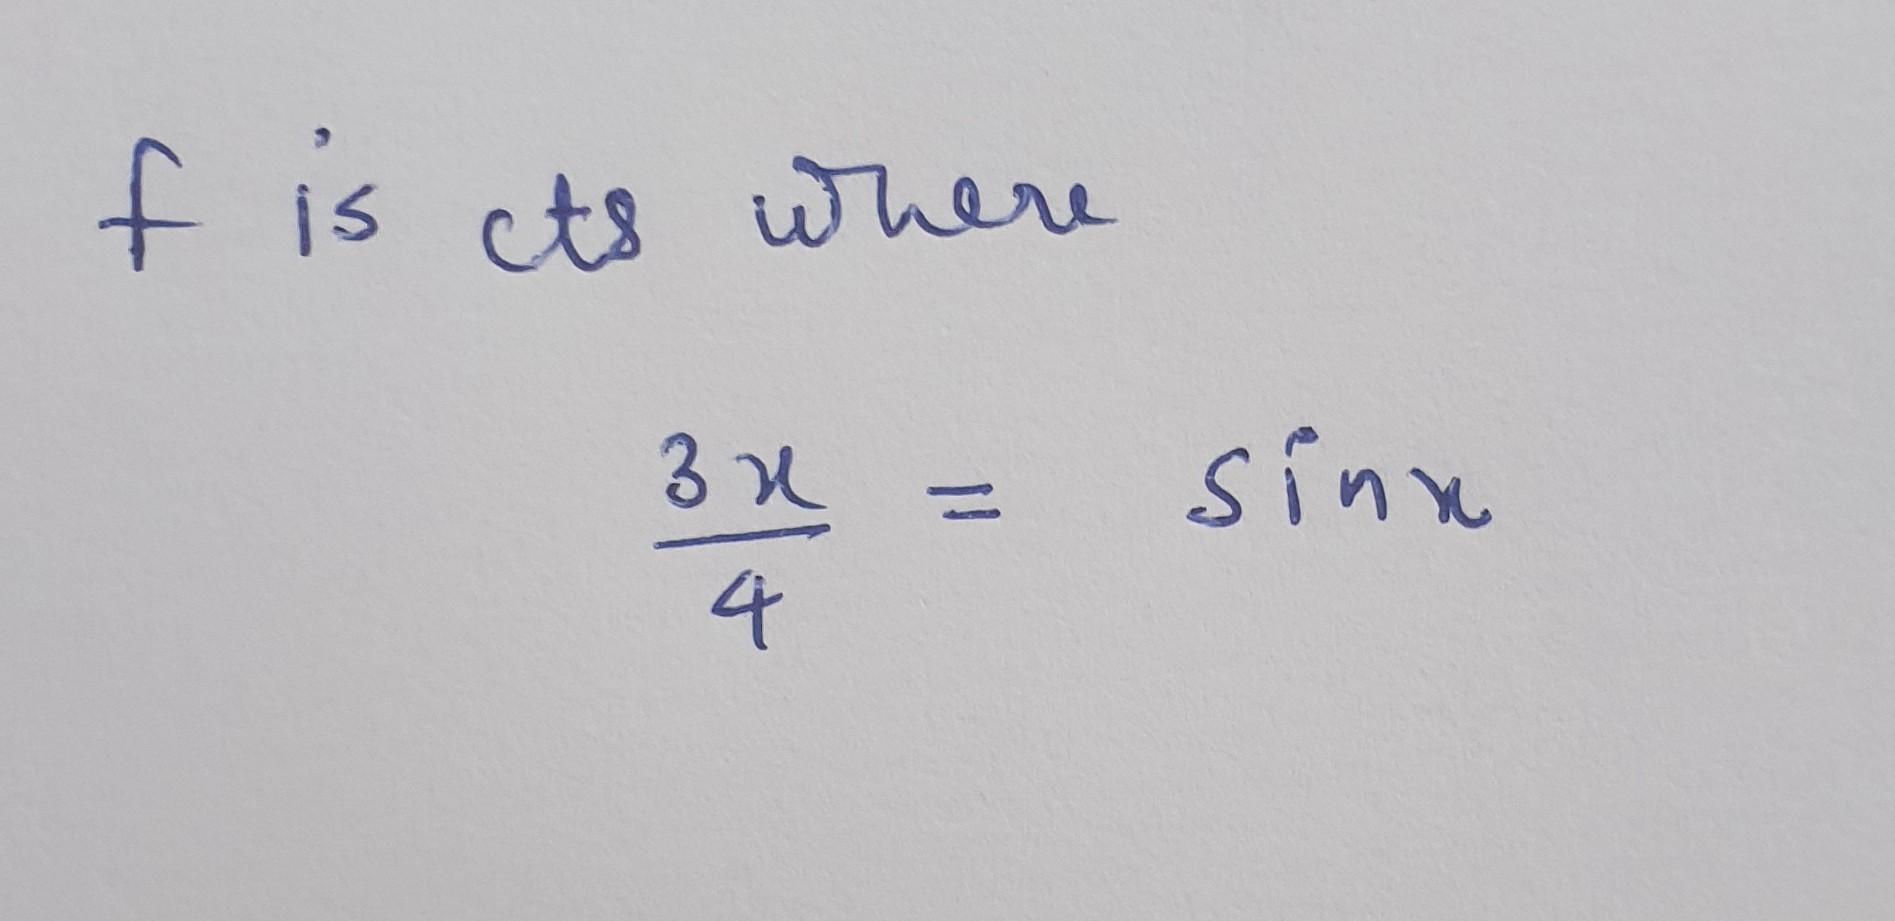 f is cts where
3x/4 = sinx